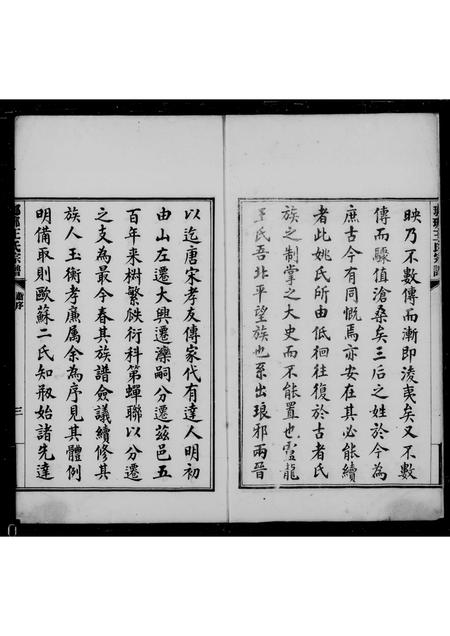 琅琊王氏宗譜
映乃不數傳而漸即淩夷矣又不數
傳而驟值滄桑矣三后之姓於今為
庶古今有同慨焉亦安在其必能續
者此姚氏所由低徊往復於古者氏
族之制掌之大史而不能置也雲龍
王氏吾北平望族也系出琅邪兩晉
以迄唐宋孝友傳家代有達人明初
由山左遷大興遷灤嗣分遷茲邑五
百年来樹繁瓞衍科第蟬聯以分遷
之支為最今春其族譜僉議續修其
族人玉衡孝廉屬余為序見其體例
明備取則歐蘇二氏知叙始諸先達
琅琊王氏宗譜
序
三